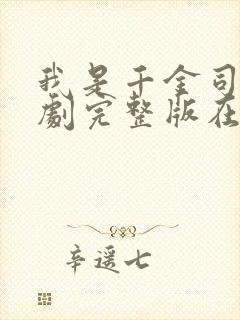 我是千金司
劇完整版在
辛遥七